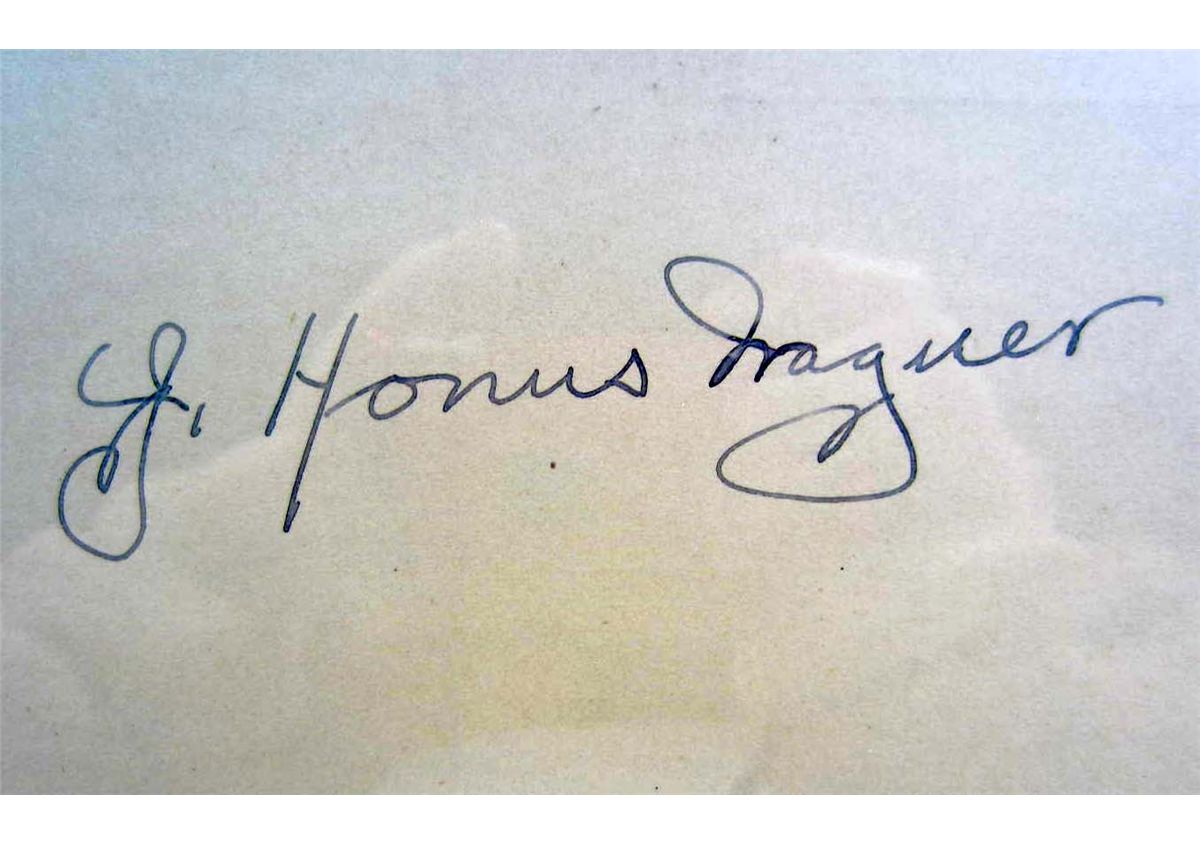 J. Honus Wagner